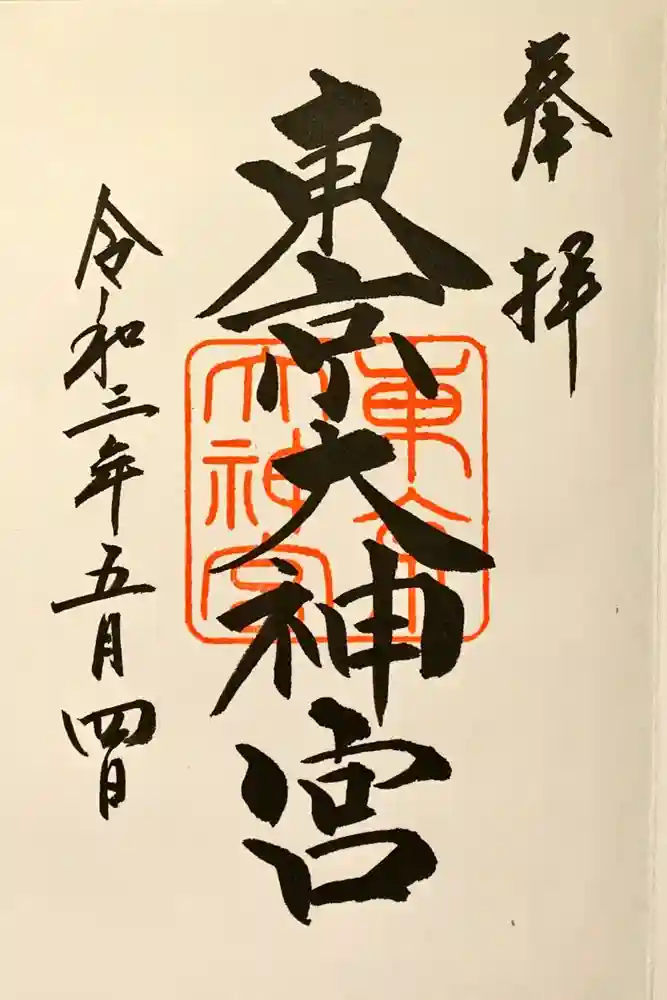 奉拝
東京大神宮
東京
大神宮
令和三年五月四日